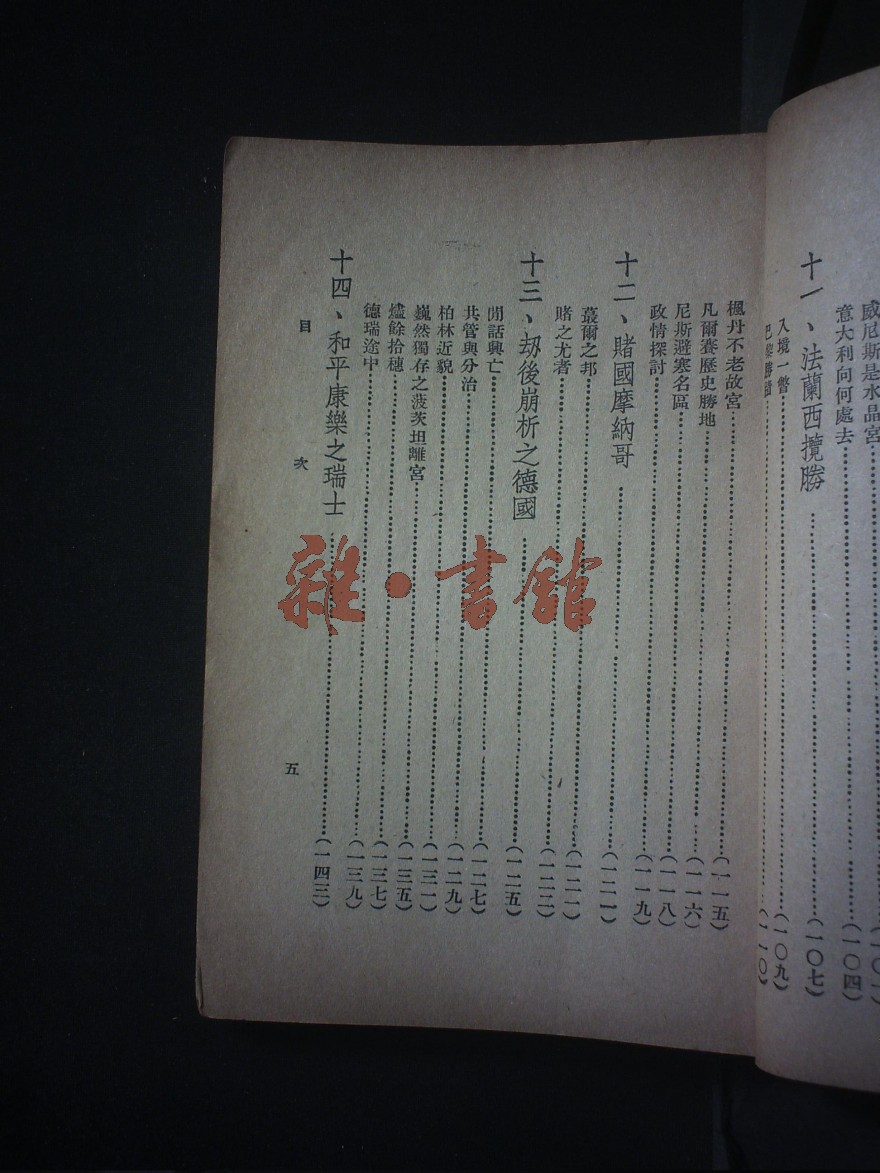 威尼斯是水晶宮
意大利向何處去……(一〇四)
十一、法蘭西攬勝……(一〇七)
入境一瞥……(一〇九)
巴黎……(一一〇)
楓丹不老故宮……(一一五)
凡爾賽歷史勝地……(一一六)
尼斯避寒名區……(一一八)
政情探討……(一一九)
十二、賭國摩納哥……(一二一)
蕞爾之邦……(一二一)
賭之尤者……(一二三)
十三、劫後崩析之德國……(一二五)
閒話興亡……(一二七)
共管與分治……(一二九)
柏林近貌……(一三一)
巍然獨存之菠茨坦離宮……(一三五)
燼餘拾穗……(一三七)
德瑞途中……(一三九)
十四、和平康樂之瑞士……(一四三)
目次
五
雜·書館